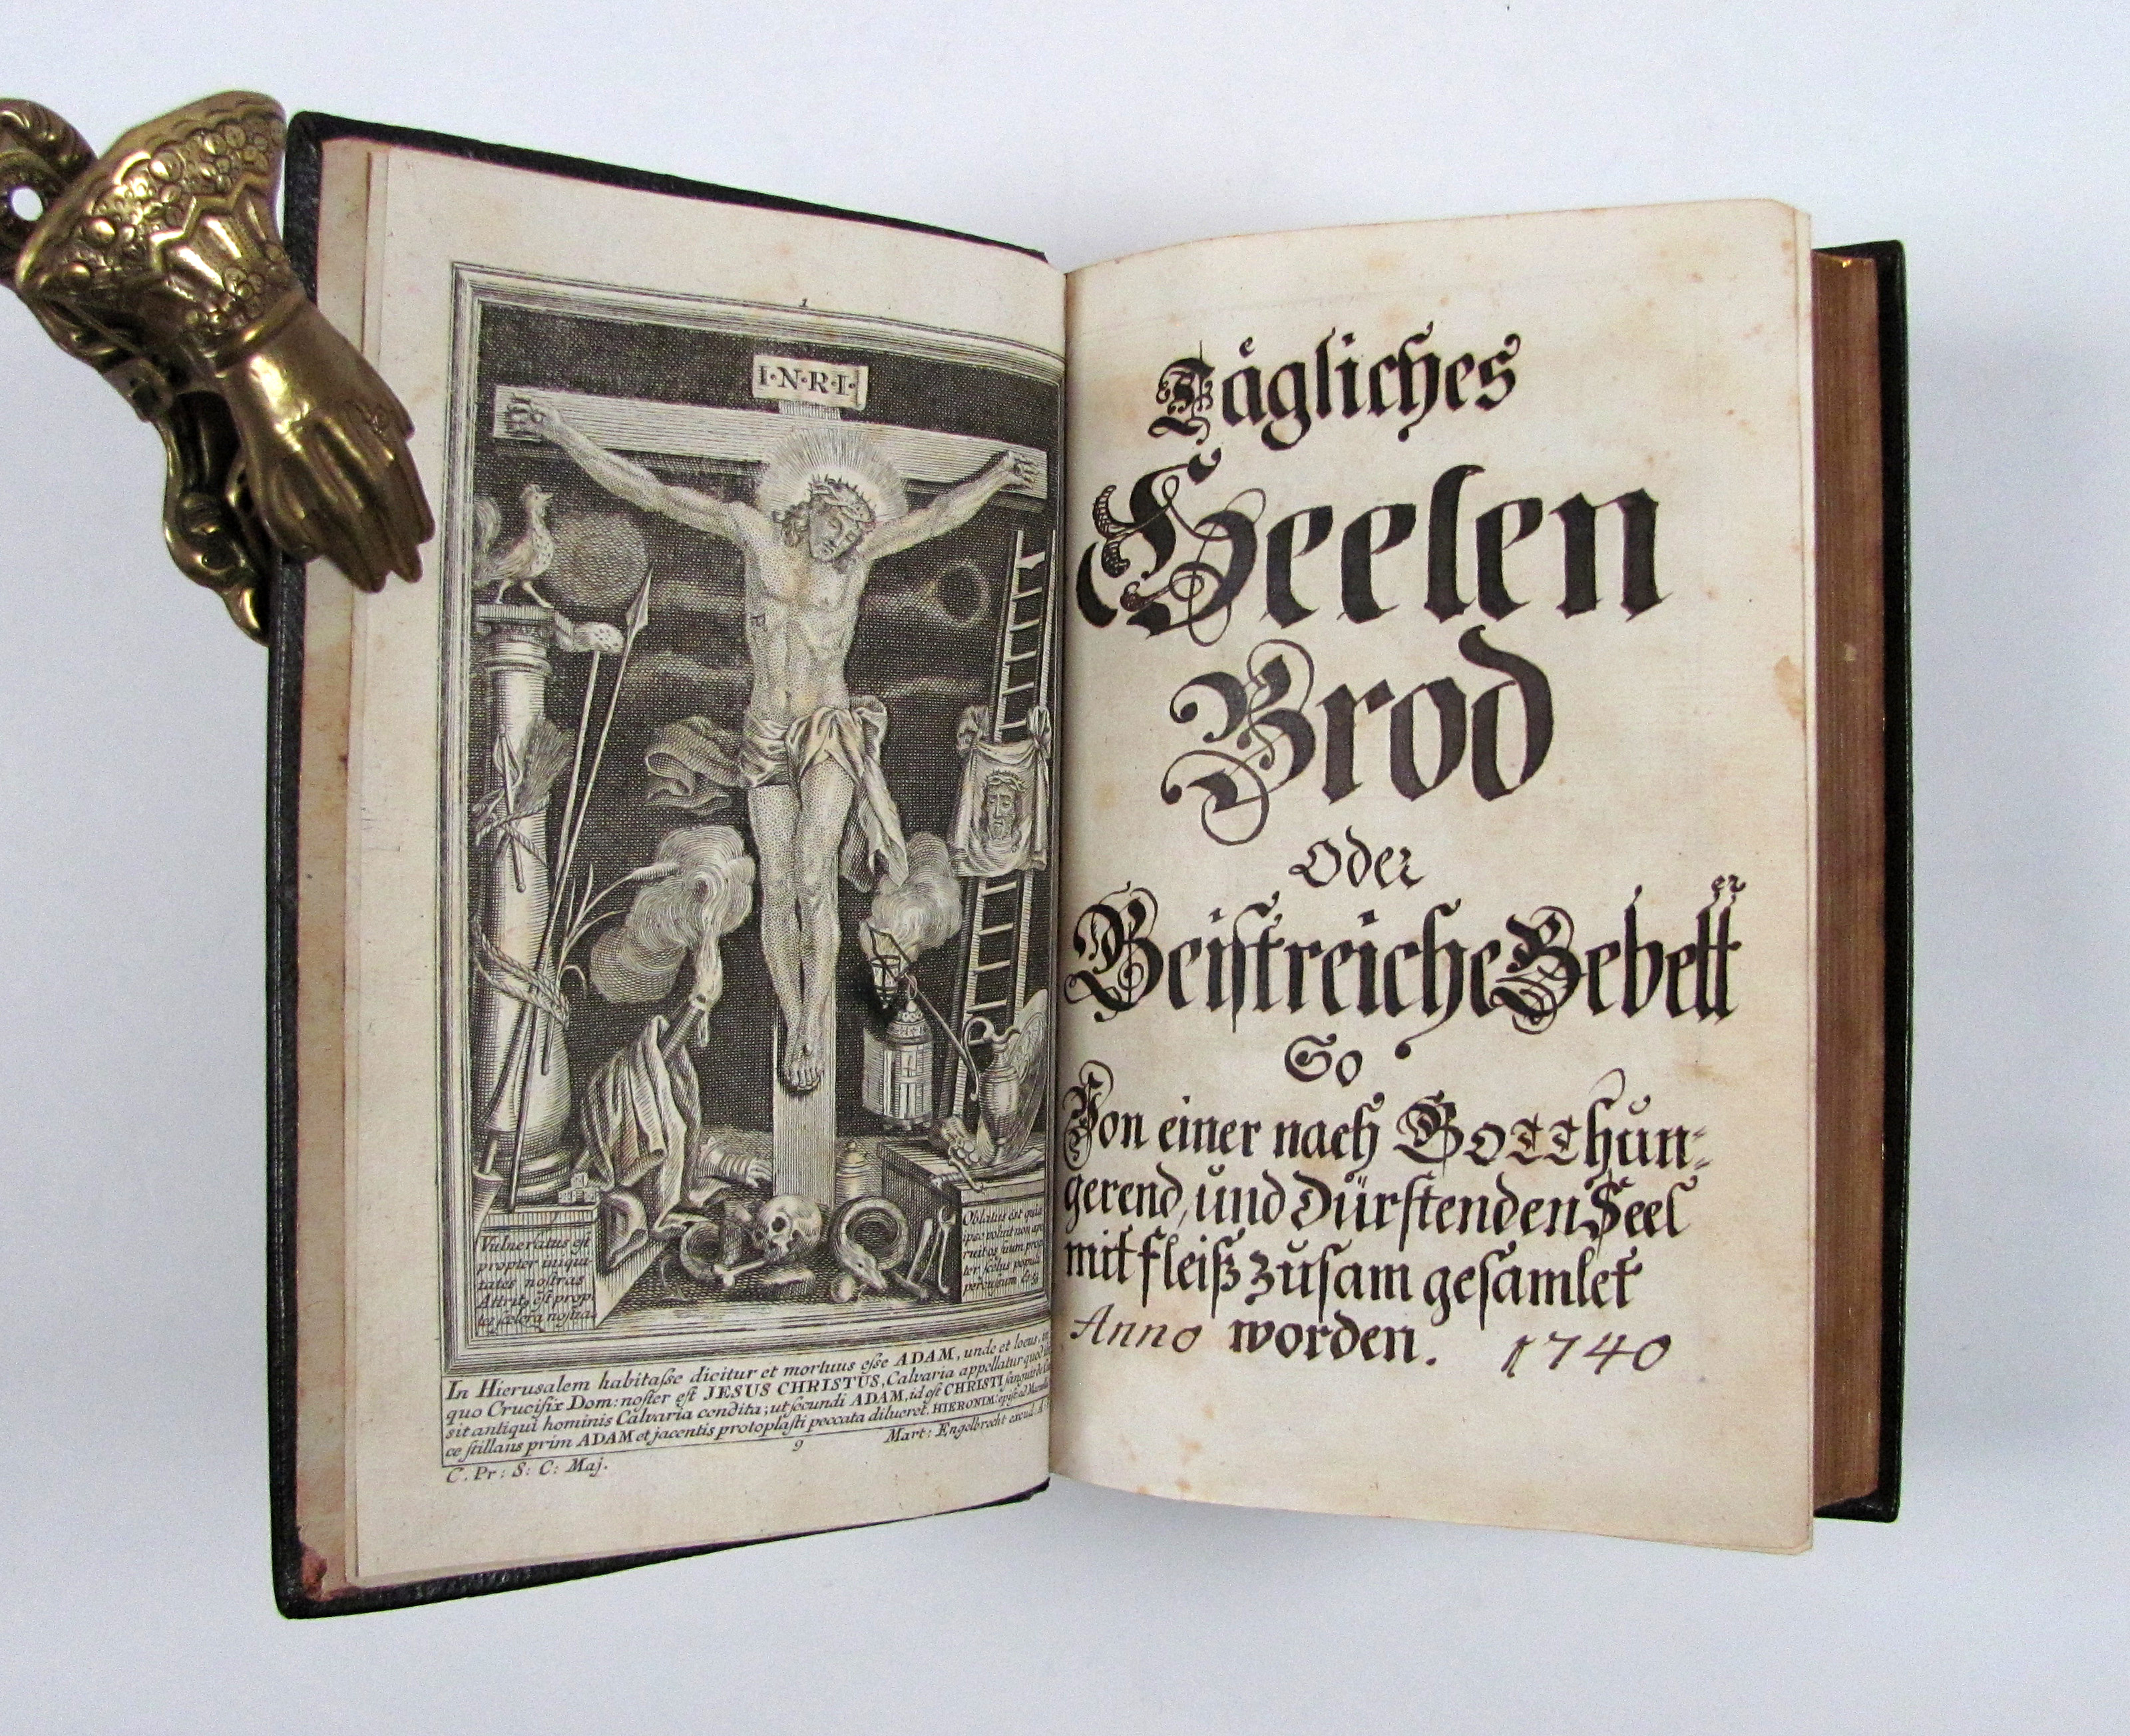 1
I·N·R·I·
Vulneratus est
propter iniqui
tates nostras
Attrit9 est prop.
ter scelera nostra.
Oblatus est quia
ipse voluit non ape
ruit os suum prop
ter scelus populi
percussum
In Hierusalem habitasse dicitur et mortuus esse ADAM, unde et locus, in
quo Crucifix Dom: noster est JESUS CHRISTUS, Calvaria appellatur quod
sit antiqui hominis Calvaria condita; ut secundi ADAM, id est CHRISTI sanguis de
ce stillans prim ADAM et jacentis protoplasti peccata dilueret. HIERONIM: epist: ad
C. Pr: S: C: Maj.
9
Mart: Engelbrecht excud: A:
Tägliches
Seelen
Brod
Oder
Geistreiche Gebetter
So
Von einer nach GOTT hün-
gerend, und dürstenden Seel
mit fleiß züsam gesamlet
Anno worden. 1740